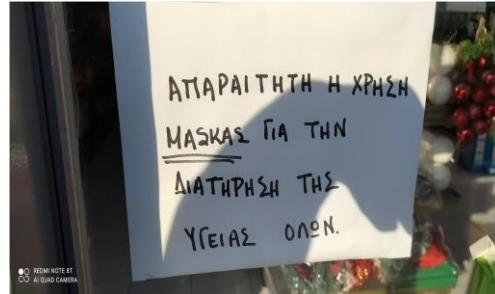 ΑΠΑΡΑΙΤΗΤΗ Η ΧΡΗΣΗ
ΜΑSΚΑΣ ΓΙΑ ΤΗΝ
ΔΙΑΤΗΡΗΣΗ ΤΗΣ
ΥΓΕΙΑΣ ΟΛΩΝ.
REDMI NOTE 8T
AI QUAD CAMERA